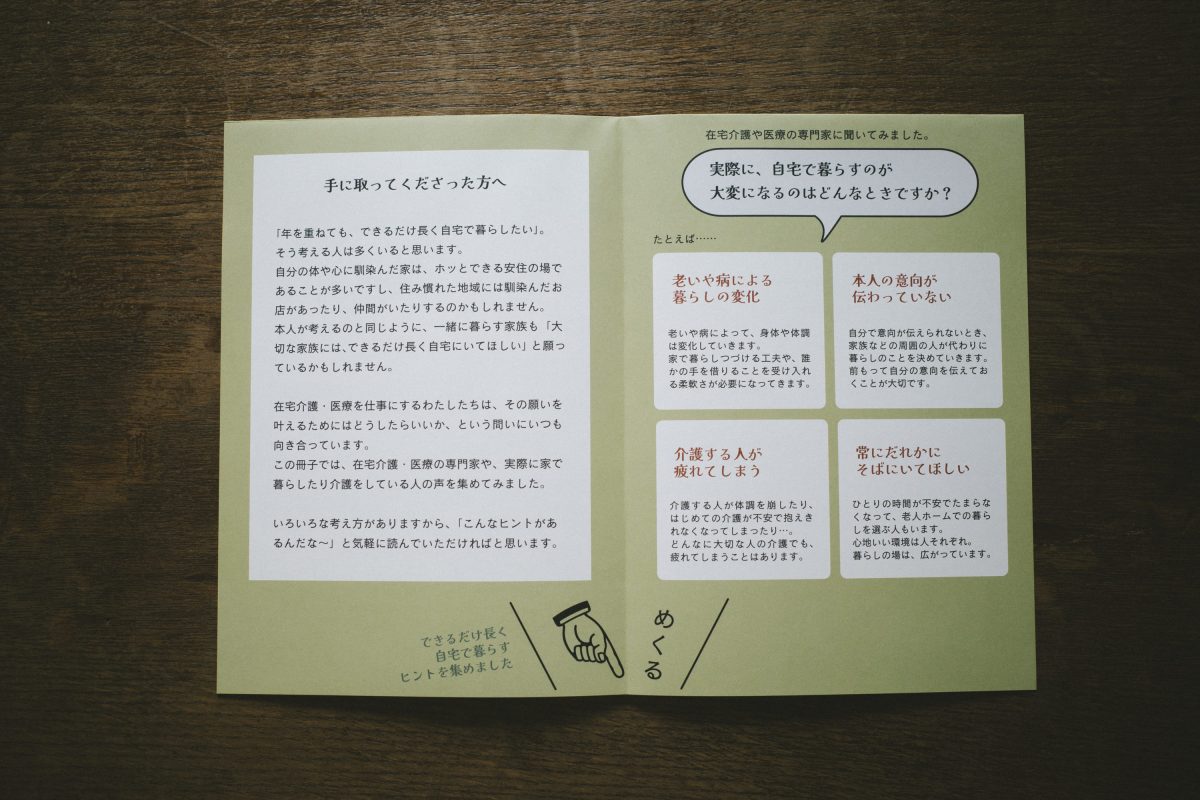 手に取ってくださった方へ
「年を重ねても、できるだけ長く自宅で暮らしたい」。
そう考える人は多くいると思います。
自分の体や心に馴染んだ家は、ホッとできる安住の場で
あることが多いですし、住み慣れた地域には馴染んだお
店があったり、仲間がいたりするのかもしれません。
本人が考えるのと同じように、一緒に暮らす家族も「大
切な家族には、できるだけ長く自宅にいてほしい」と願っ
ているかもしれません。
在宅介護・医療を仕事にするわたしたちは、その願いを
叶えるためにはどうしたらいいか、という問いにいつも
向き合っています。
この冊子では、在宅介護・医療の専門家や、実際に家で
暮らしたり介護をしている人の声を集めてみました。
いろいろな考え方がありますから、「こんなヒントがあ
るんだな〜」と気軽に読んでいただければと思います。
できるだけ長く
自宅で暮らす
ヒントを集めました
めくる
在宅介護や医療の専門家に聞いてみました。
実際に、自宅で暮らすのが
大変になるのはどんなときですか？
たとえば……
老いや病による
暮らしの変化
老いや病によって、身体や体調
は変化していきます。
家で暮らしつづける工夫や、誰
かの手を借りることを受け入れ
る柔軟さが必要になってきます。
本人の意向が
伝わっていない
自分で意向が伝えられないとき、
家族などの周囲の人が代わりに
暮らしのことを決めていきます。
前もって自分の意向を伝えてお
くことが大切です。
介護する人が
疲れてしまう
介護する人が体調を崩したり、
はじめての介護が不安で抱えき
れなくなってしまったり…。
どんなに大切な人の介護でも、
疲れてしまうことはあります。
常にだれかに
そばにいてほしい
ひとりの時間が不安でたまらな
くなって、老人ホームでの暮ら
しを選ぶ人もいます。
心地いい環境は人それぞれ。
暮らしの場は、広がっています。